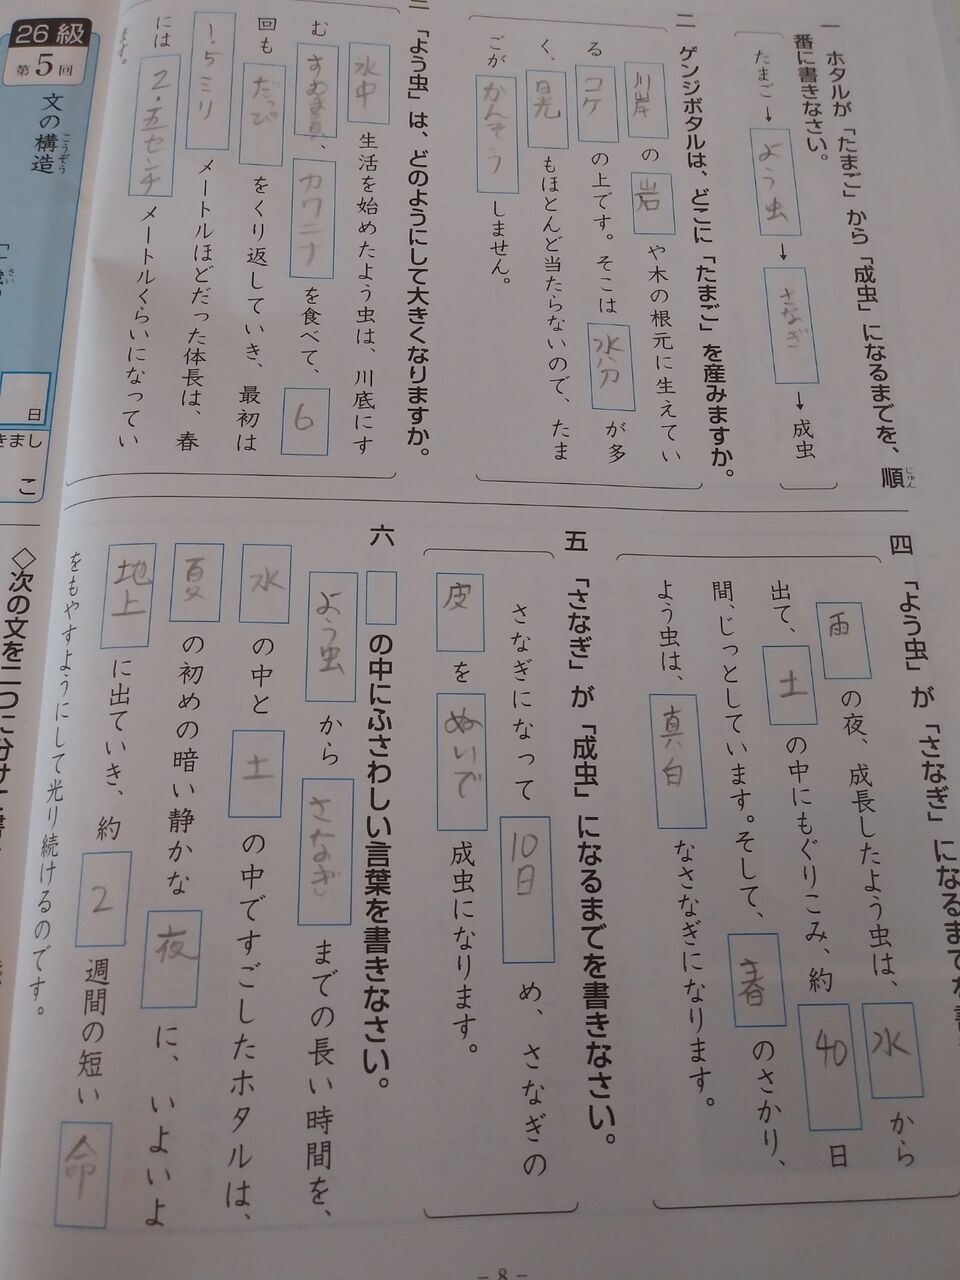 一 ホタルが「たまご」から「成虫」になるまでを、順
じゅん
番に書きなさい。
たまご→よう虫→さなぎ→成虫
二 ゲンジボタルは、どこに「たまご」を産みますか。
川岸の岩や木の根元に生えてい
るコケの上です。そこは水分が多
く、日光もほとんど当たらないので、たま
ごがかんそうしません。
三 「よう虫」は、どのようにして大きくなりますか。
水中生活を始めたよう虫は、川底にす
む、カワニナを食べて、6
回もだっぴをくり返していき、最初は
1.5ミリメートルほどだった体長は、春
には2.五センチメートルくらいになってい
ます。
四 「よう虫」が「さなぎ」になるまでを書
雨の夜、成長したよう虫は、水から
出て、土の中にもぐりこみ、約40日
間、じっとしています。そして、春のさかり、
よう虫は、真白なさなぎになります。
五 「さなぎ」が「成虫」になるまでを書きなさい。
さなぎになって10日め、さなぎの
皮をぬいで成虫になります。
六 □の中にふさわしい言葉を書きなさい。
よう虫からさなぎまでの長い時間を、
水の中と土の中ですごしたホタルは、
夏の初めの暗い静かな夜に、いよいよ
地上に出ていき、約2週間の短い命
をもやすようにして光り続けるのです。
26級
第5回
文の構造
こうぞう
日
きまし
こ
◇次の文を二つに分けて書
- 8 -